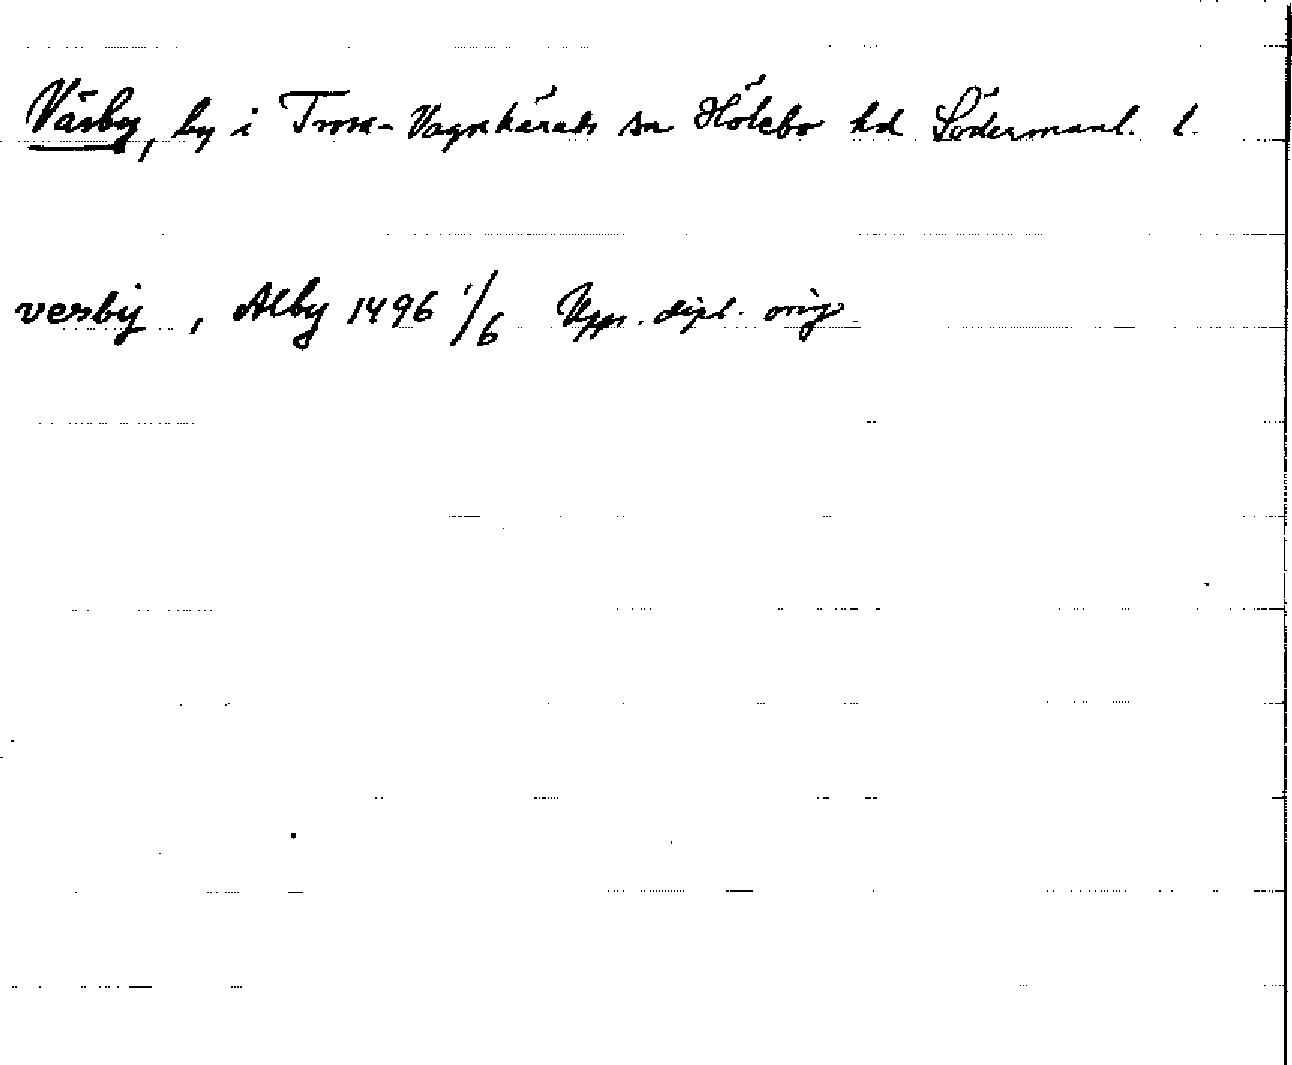 Väsby, by i Trosa-Vagnhärads sn Hölebo hd Södermanl. l.
vesby, Alby 1496 1/6 Upps. dipl. orig.